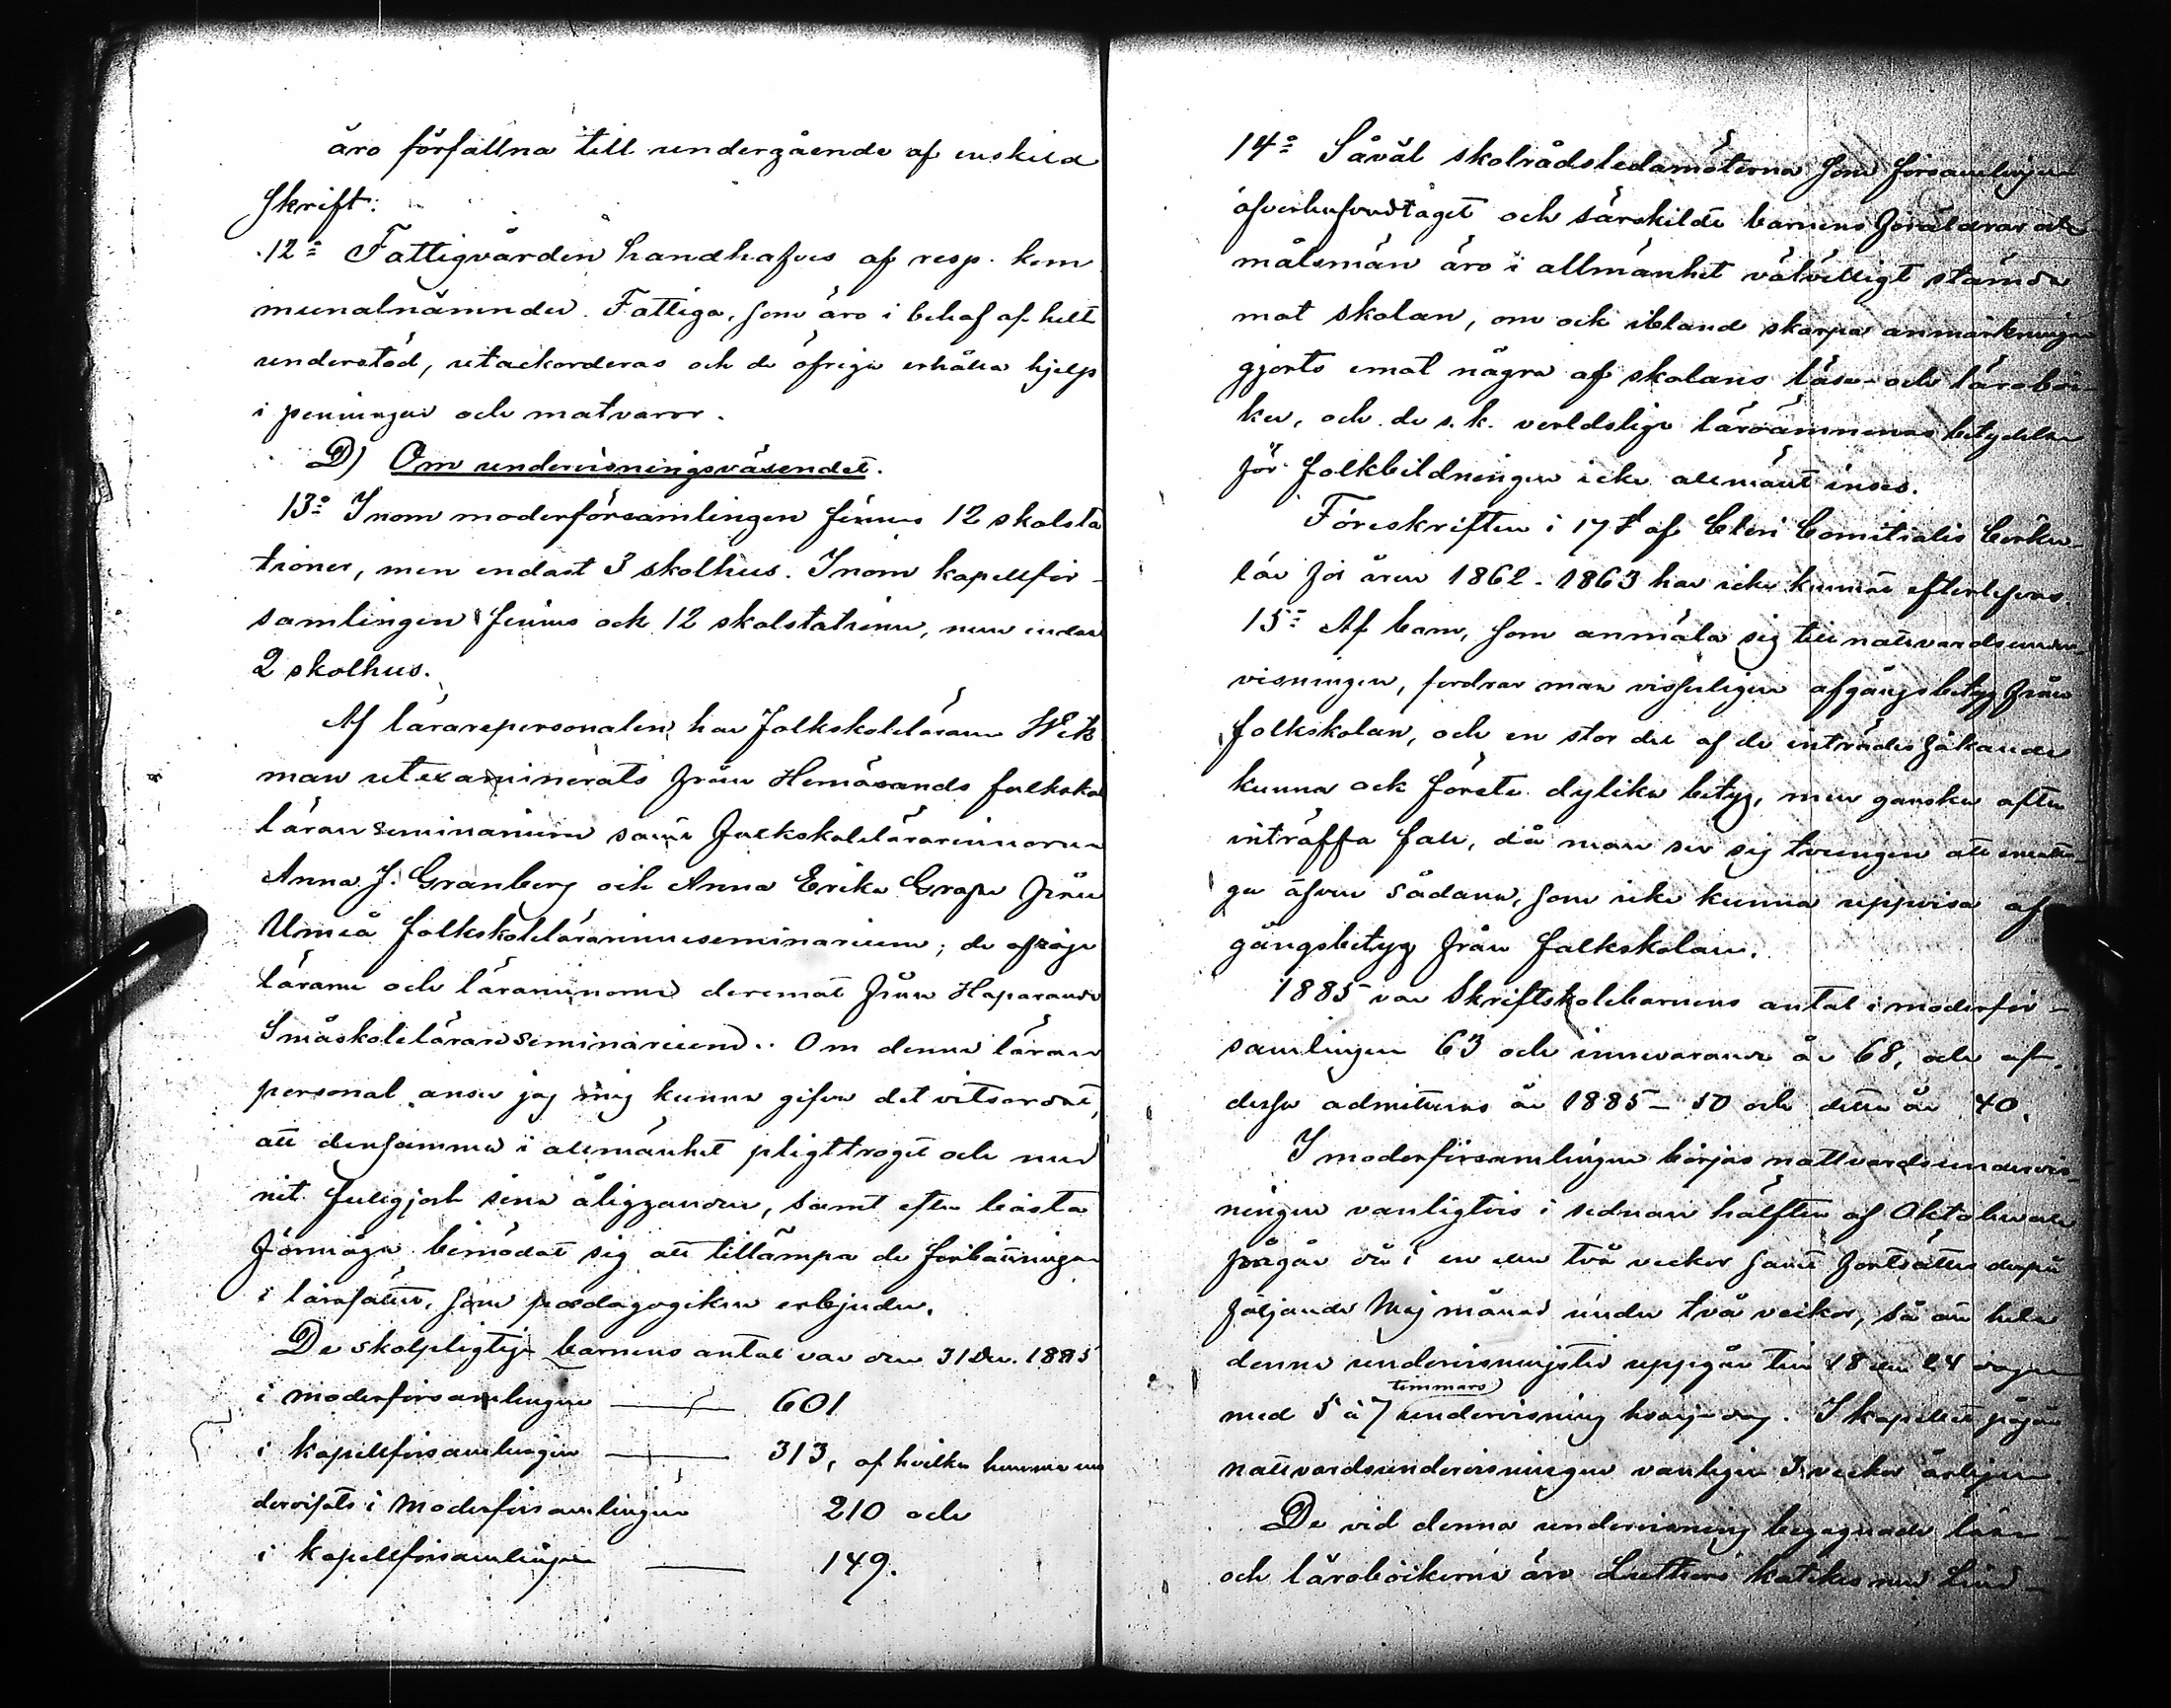 äro förfallna till undergående af enskild
skrift:
12:o Fattigvården handhafves af resp. kom
munalnämnder. Fattiga, som äro i behof af helt
understöd, utackorderas och de öfriga erhålla hjelp
i penningar och matvaror.
D) Om undervisningsväsendet.
13:o Inom moderförsamlingen finnes 12 skolsta
tioner, men endast 3 skolhus. Inom kapellför-
samlingen finnes ock 12 skolstationer, men endast
2 skolhus.
Af lärarepersonalen har folkskoleläraren Wik
man utexaminerats från Hernösands folkskole
lärareseminarium samt folkskolelärarinnorna
Anna J. Granberg och Anna Erika Grape från
Umeå folkskolelärarinneseminarium; de öfriga
lärarne och lärarinnorna deremot från Haparanda
Småskolelärareseminarium. Om denna lärare
personal anser jag mig kunna gifva det vitsordet,
att densamma i allmänhet pligttroget och med
nit fullgjort sina åligganden, samt efter bästa
förmåga bemödat sig att tillämpa de förbättringar
i lärosättet, som pædagogiken erbjuder.
De skolpligtiga barnens antal var den 31 Dec. 1885
i moderförsamlingen — 601
i kapellförsamlingen — 313, af hvilka hemma un
dervisats i Moderförsamlingen 210 och
i kapellförsamlingen — 149.
14:o Såväl skolrådsledamöterna som församlingen
öfverhufvudtaget och särskildt barnens föräldrar och
målsmän äro i allmänhet välvilligt stämda
mot skolan, om ock ibland skarpa anmärkningar
gjorts emot några af skolans läse- och läroböc-
ker, och de s.k. verldsliga läroämnenas betydelse
för folkbildningen icke allmänt inses.
Föreskriften i 17 § af Cleri Comitialis Cirku-
lär för åren 1862-1863 har icke kunnat efterlefvas.
15:o Af barn, som anmäla sig till nattvardsunder-
visningen, fordrar man visserligen afgångsbetyg från
folkskolan, och en stor del af de inträdessökande
kunna ock förete dylika betyg, men ganska ofta
inträffa fall, då man ser sig tvungen att emotta-
ga äfven sådana, som icke kunna uppvisa af
gångsbetyg från folkskolan.
1885 var Skriftskolebarnens antal i moderför-
samlingen 63 och innevarande år 68, och af
dessa admitteras år 1885 – 50 och detta år 40.
I moderförsamlingen börjas nattvardsundervis-
ningen vanligtvis i sednare hälften af Oktober och
pågår då i en eller två veckor samt fortsättes derpå
följande Maj månad under två veckor, så att hela
denna undervisningstid uppgår till 18 eller 24 dagar
timmars
med 5 à 7 undervisning hvarje dag. I kapellet pågår
nattvardsundervisningen vanligen 3 veckor årligen.
De vid denna undervisning begagnade läse-
och läroböckerna äro Luthers katekes med Lind-